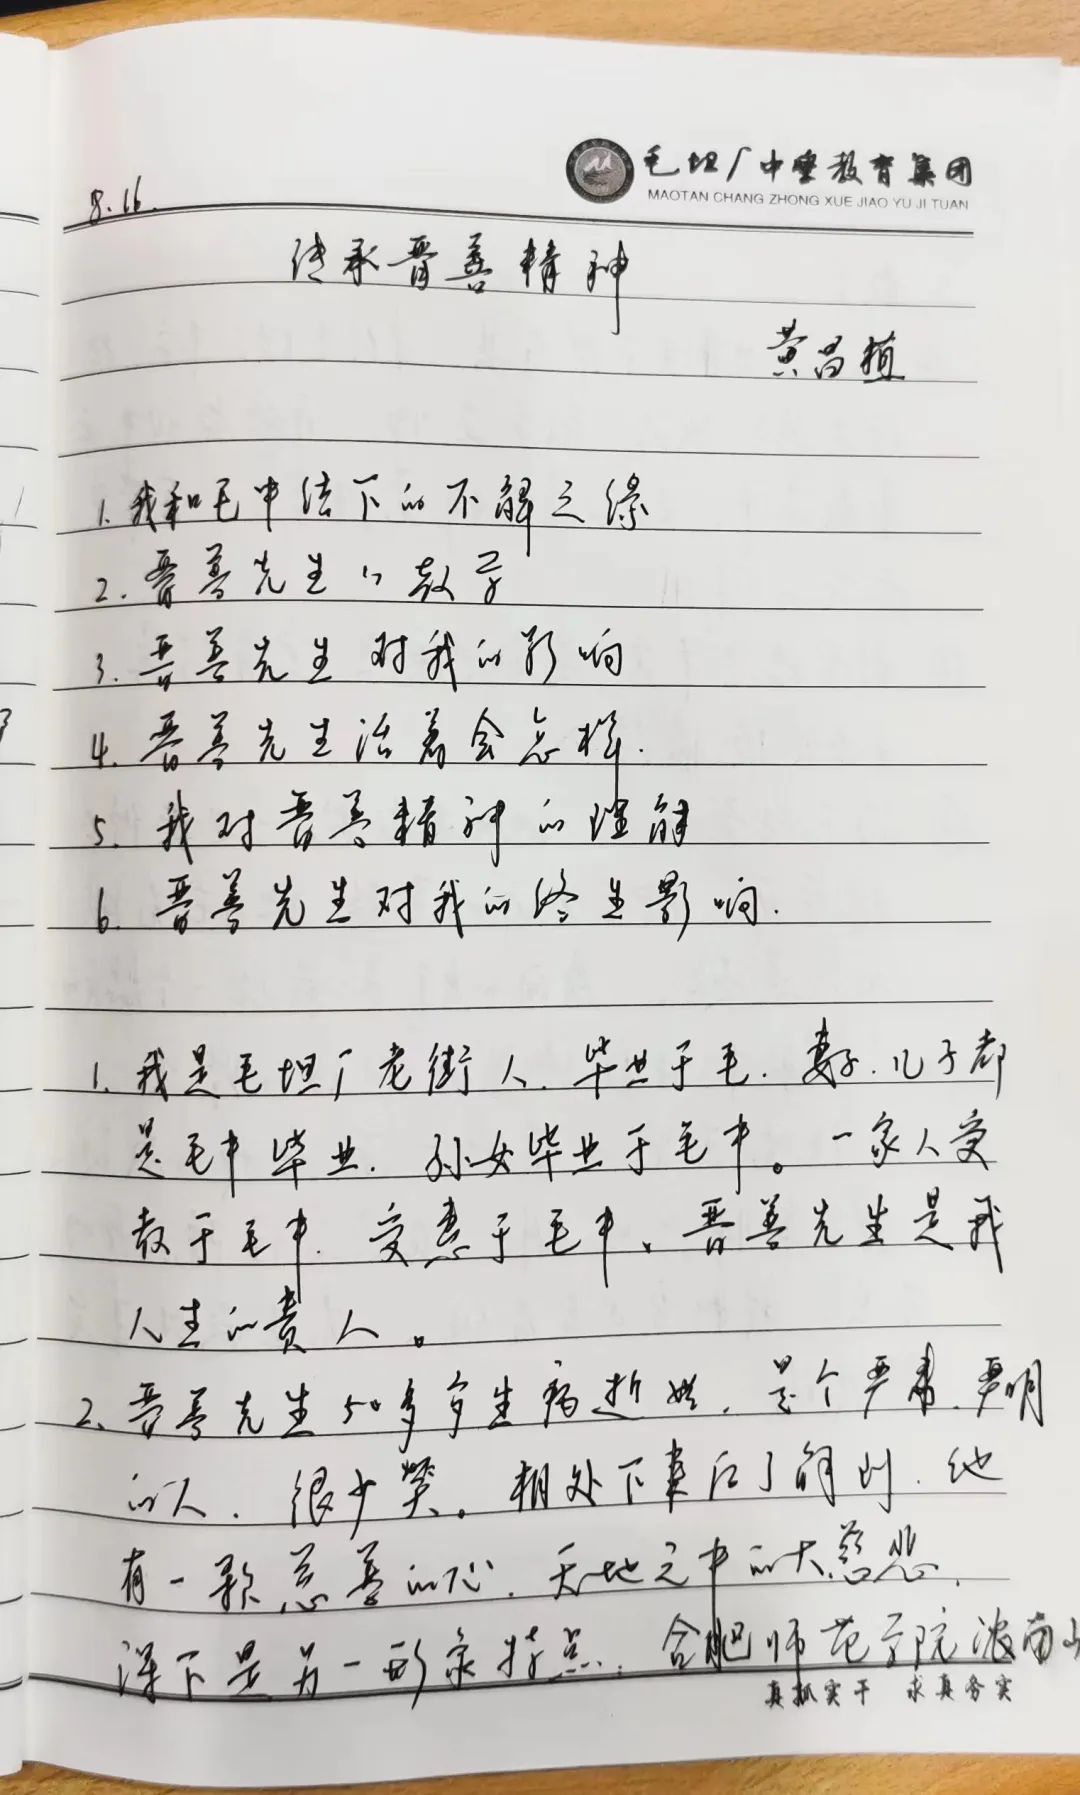 毛坦厂中学教育集团
MAOTAN CHANG ZHONG XUE JIAO YU JI TUAN
8.16.
传承晋善精神
黄昌植
1. 我和毛中结下的不解之缘
2. 晋善先生的教学
3. 晋善先生对我的影响
4. 晋善先生活着会怎样.
5. 我对晋善精神的理解
6. 晋善先生对我的终生影响.
1. 我是毛坦厂老街人. 毕业于毛. 妻子.儿子都
是毛中毕业. 孙女毕业于毛中。一家人受
教于毛中. 受惠于毛中。晋善先生是我
人生的贵人。
2. 晋善先生50多岁生病逝世. 是个严肃.严明
的人. 很少笑。相处下来后了解到. 他
有一颗慈善的心. 天地之中的大慈悲.
下是另一特点. 合肥师范学院
真抓实干 求真务实